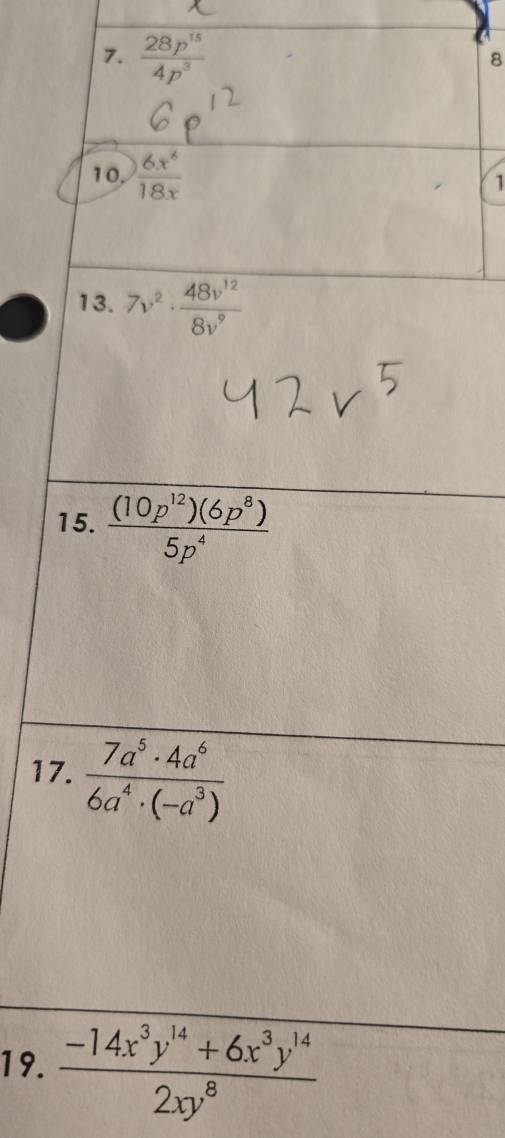 x
7. \frac{28p^{15}}{4p^3}
8
6p^{12}
10. \frac{6x^6}{18x}
1
13. 7v^2 \cdot \frac{48v^{12}}{8v^9}
42v^5
15. \frac{(10p^{12})(6p^8)}{5p^4}
17. \frac{7a^5 \cdot 4a^6}{6a^4 \cdot (-a^3)}
19. \frac{-14x^3y^{14} + 6x^3y^{14}}{2xy^8}